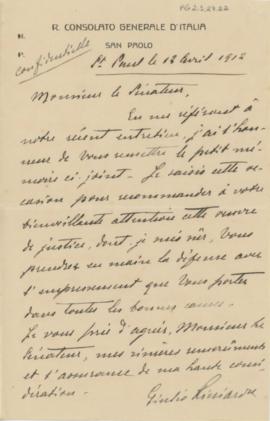 PG2.S.27.22
R. CONSOLATO GENERALE D'ITALIA
SAN PAOLO
N.
P.
confidentielle
le 18 Avril 1912
Monsieur le Sénateur,
En me référant à
notre récent entretien, j'ai l'hon-
neur de vous remettre le petit mé-
moire ci-joint. Je saisis cette oc-
casion pour recommander à votre
bienveillante attention cette œuvre
de justice, dont, je suis sûr, vous
prendrez en main la défense avec
l'empressement que vous portez
dans toutes les bonnes causes.
Je vous prie d'agréer, Monsieur le
Sénateur, mes sincères remerciements
et l'assurance de ma haute consi-
dération.
Giulio